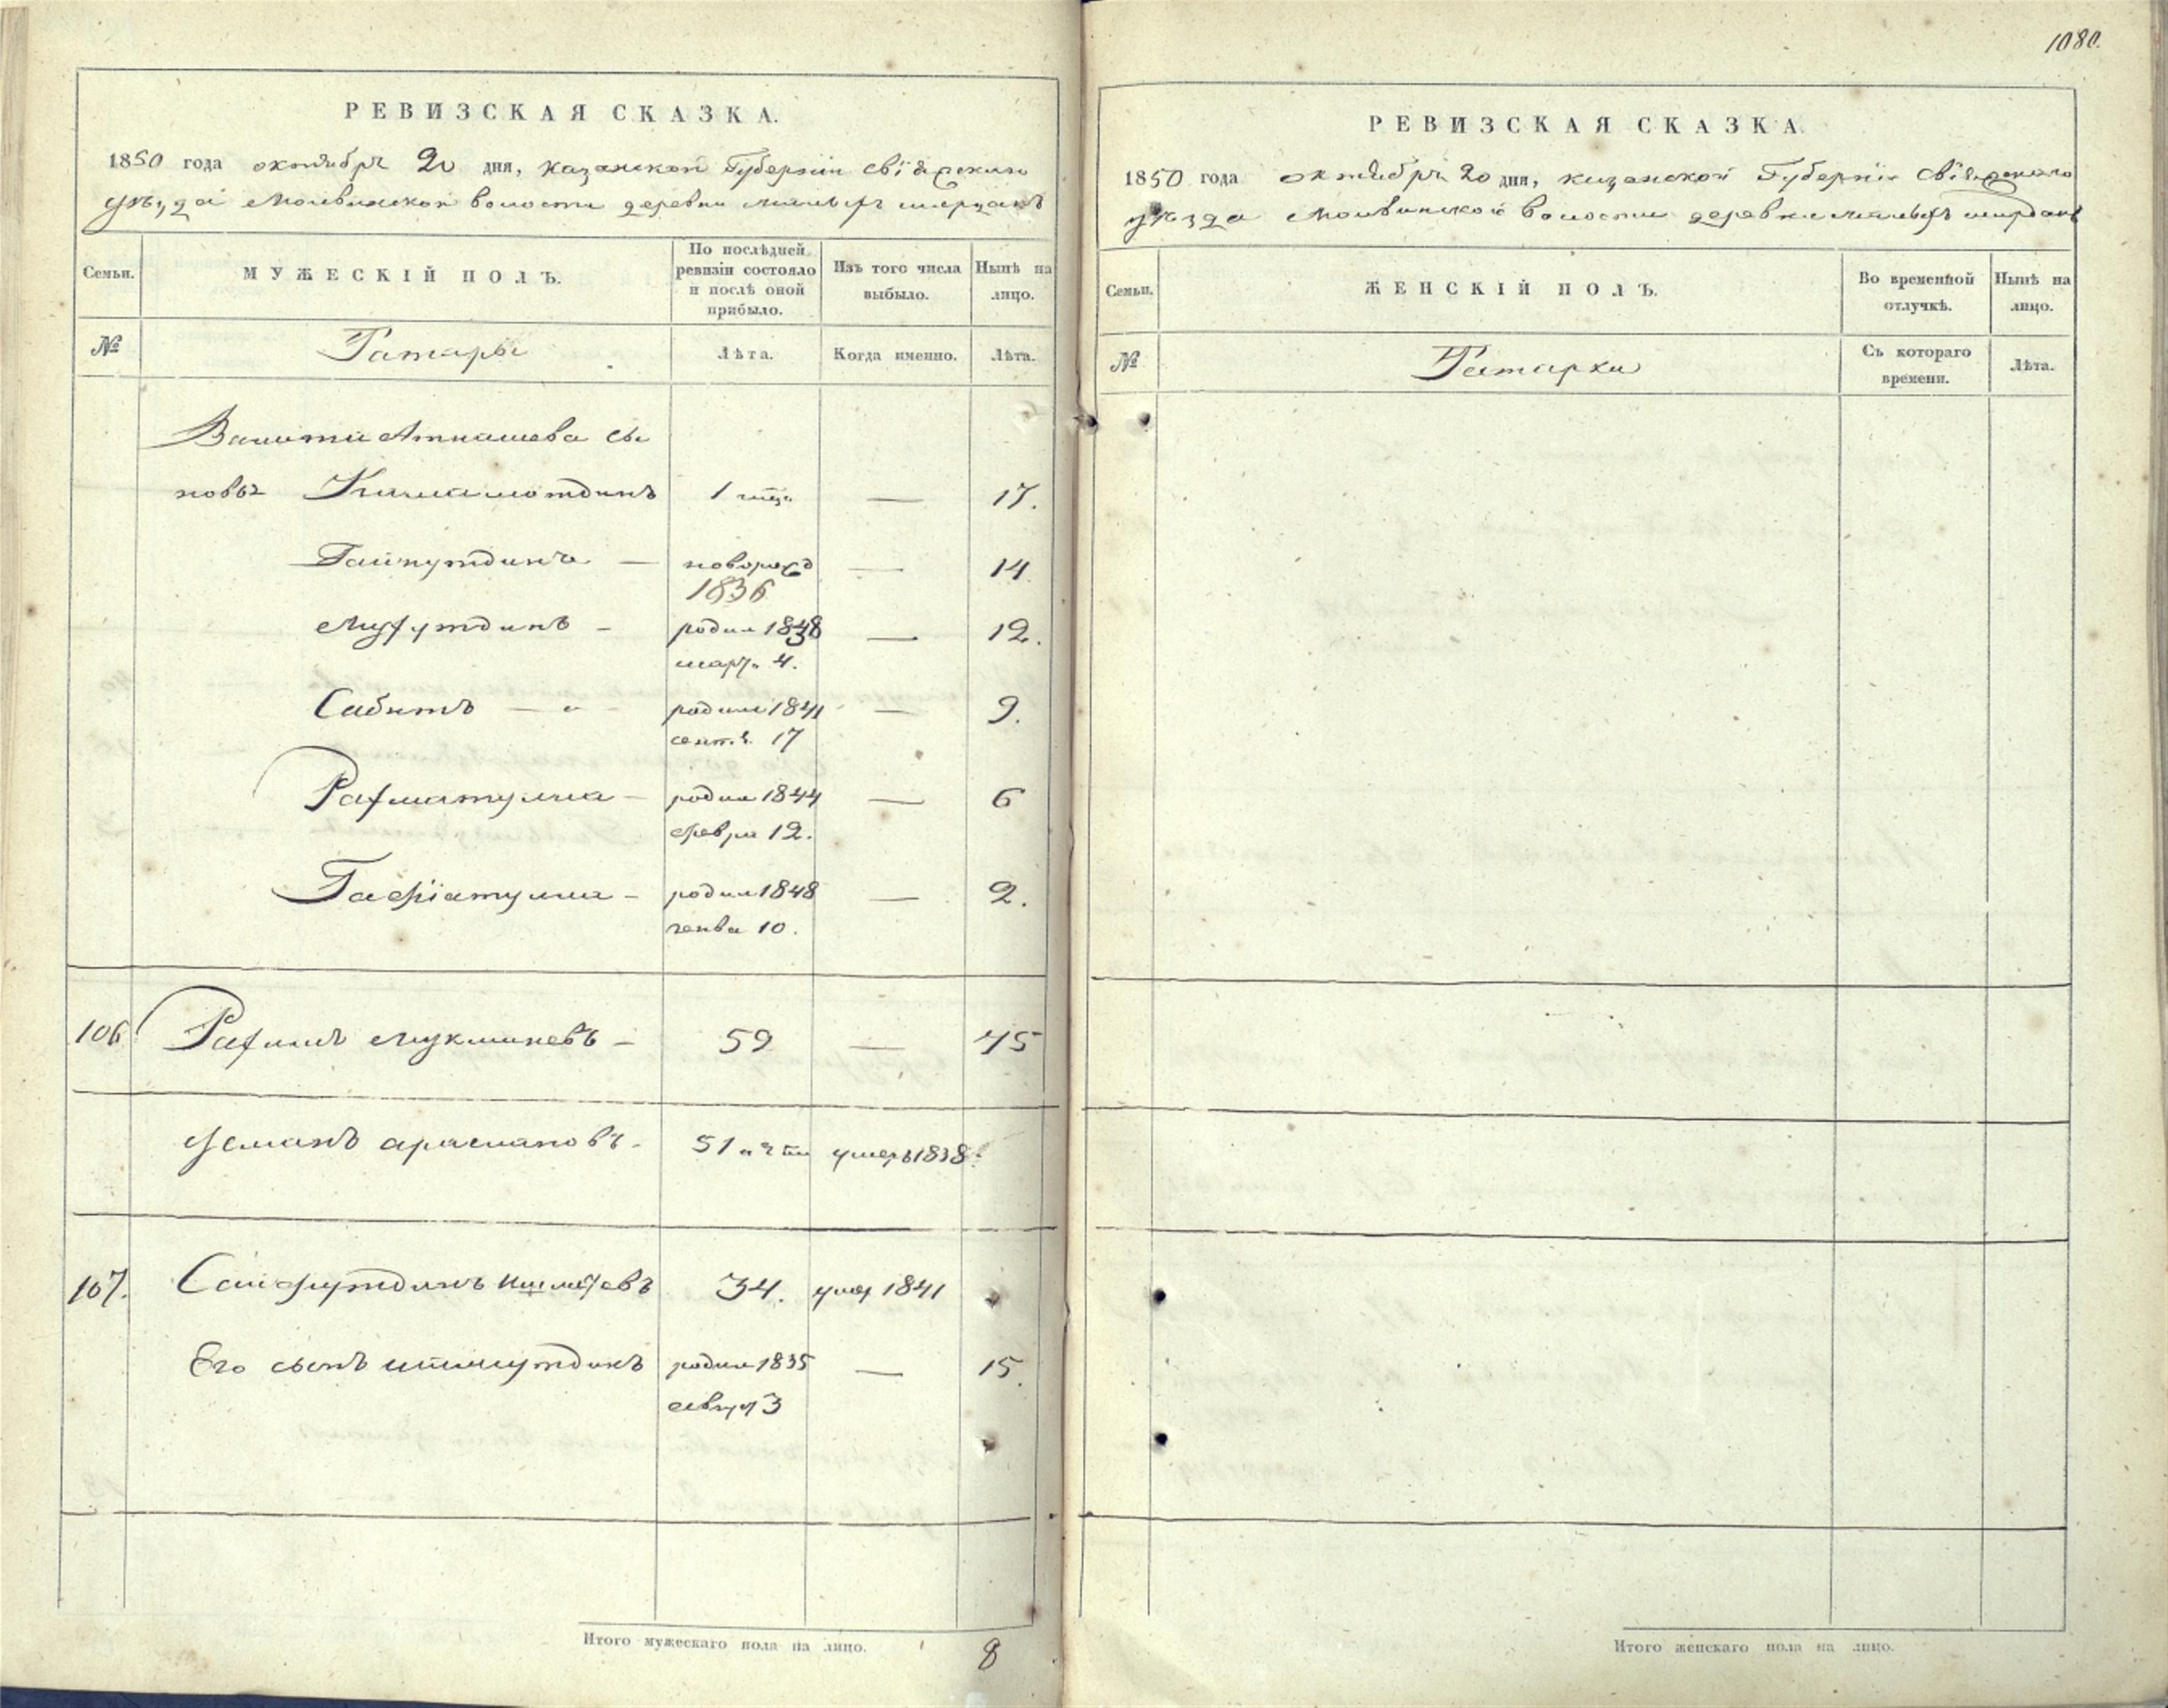 1080.
РЕВИЗСКАЯ СКАЗКА.
1850 года октября 20 дня, казанской Губернии свіяжскаго
уѣзда Молвинской волости деревни малыхъ ширданъ
Семьи.
МУЖЕСКІЙ ПОЛЪ.
По послѣдней
ревизіи состояло
и послѣ оной
прибыло.
Изъ того числа
выбыло.
Нынѣ на
лицо.
№
Татары
Лѣта.
Когда именно.
Лѣта.
сы
новья Камалютдинъ 1 — 17.
Гайнутдинъ — новорожд — 14
1836
— родил 1838 — 12.
март. 4.
Сабитъ — родил 1841 — 9.
сент. 17
Рахматулла — родил 1844 — 6
февра 12.
родил 1848 — 2.
генва 10.
106 Рахимъ Мукминевъ — 59 — 45
Усманъ араслановъ — 51 умеръ 1838
107. Сайфутдинъ Ишметевъ 34. умер 1841
Его сынъ родил 1835 — 15.
август 3
Итого мужескаго пола на лицо. 8
РЕВИЗСКАЯ СКАЗКА
1850 года октября 20 дня, казанской Губерніи Свіяжскаго
уѣзда Молвинской волости деревни малыхъ ширданъ
Семьи.
ЖЕНСКІЙ ПОЛЪ.
Во временной
отлучкѣ.
Нынѣ на
лицо.
№
Татарки
Съ котораго
времени.
Лѣта.
Итого женскаго пола на лицо.